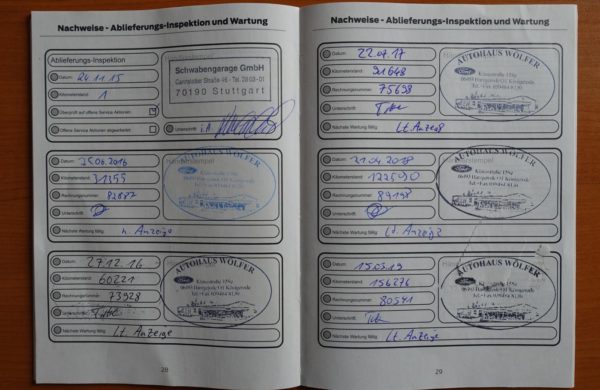 Nachweise - Ablieferungs-Inspektion und Wartung
Ablieferungs-Inspektion
Datum: 24.11.15
Kilometerstand: 1
Überprüft auf offene Service Aktionen:
Offene Service Aktionen abgearbeitet:
Schwabengarage GmbH
70190 Stuttgart
Unterschrift: i.A
Datum: 25.06.2016
Kilometerstand: 31355
Rechnungsnummer:
Unterschrift:
Nächste Wartung fällig: n. Anzeige
AUTOHAUS WÖLFER
Ford
Datum: 27.12.16
Kilometerstand: 60221
Rechnungsnummer: 73928
Unterschrift:
Nächste Wartung fällig: Lt. Anzeige
AUTOHAUS WÖLFER
Ford
28
Nachweise - Ablieferungs-Inspektion und Wartung
Datum: 22.07.17
Kilometerstand: 91648
Rechnungsnummer: 75698
Unterschrift:
Nächste Wartung fällig: Lt. Anzeige
AUTOHAUS WÖLFER
Ford
Datum: 21.04.2018
Kilometerstand:
Rechnungsnummer:
Unterschrift:
Nächste Wartung fällig: Lt. Anzeige
AUTOHAUS WÖLFER
Ford
Datum: 15.03.19
Kilometerstand: 156276
Rechnungsnummer: 80541
Unterschrift:
Nächste Wartung fällig: Lt. Anzeige
AUTOHAUS WÖLFER
Ford
29